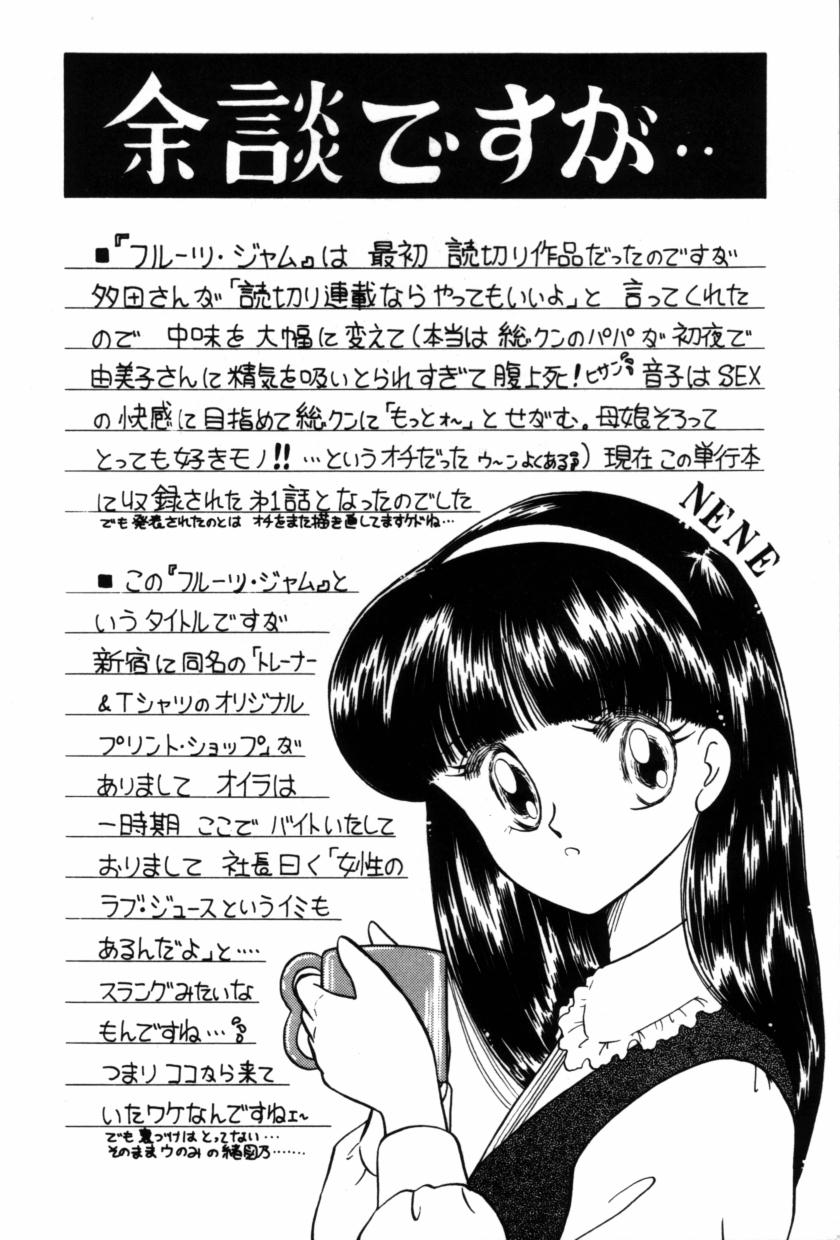 余談ですが‥
■『フルーツ・ジャム』は 最初 読切り作品だったのですが
多田さんが「読切り連載ならやってもいいよ」と 言ってくれた
ので 中味を 大幅に 変えて(本当は 総クンのパパが 初夜で
由美子さんに精気を吸いとられすぎて腹上死!ヒサン 音子はSEX
の快感に目指めて総クンに「もっとォ〜」とせがむ。母娘そろって
とっても好きモノ!!…というオチだった ウ〜ンよくある)現在この単行本
に収録された 第1話となったのでした
でも発表されたのとは オチをまた描き直してますケドね…
NENE
■ この『フルーツ・ジャム』と
いうタイトルですが
新宿に同名の「トレーナー
&Tシャツのオリジナル
プリント・ショップ」が
ありまして オイラは
一時期 ここで バイトいたして
おりまして 社長曰く「女性の
ラブ・ジュースというイミも
あるんだよ」と‥‥
スラングみたいな
もんですね…
つまり ココから来て
いたワケなんですねェ〜
でも裏づけはとってない…
そのままウのみの緒図乃‥‥‥